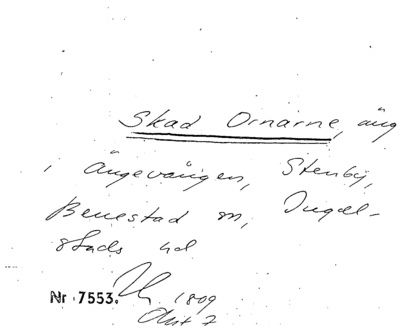 Skad Ornarne, äng
i Ängevången, Stenby,
Benestad sn, Ingel-
stads hd
Nr 7553. 1809
Akt 7